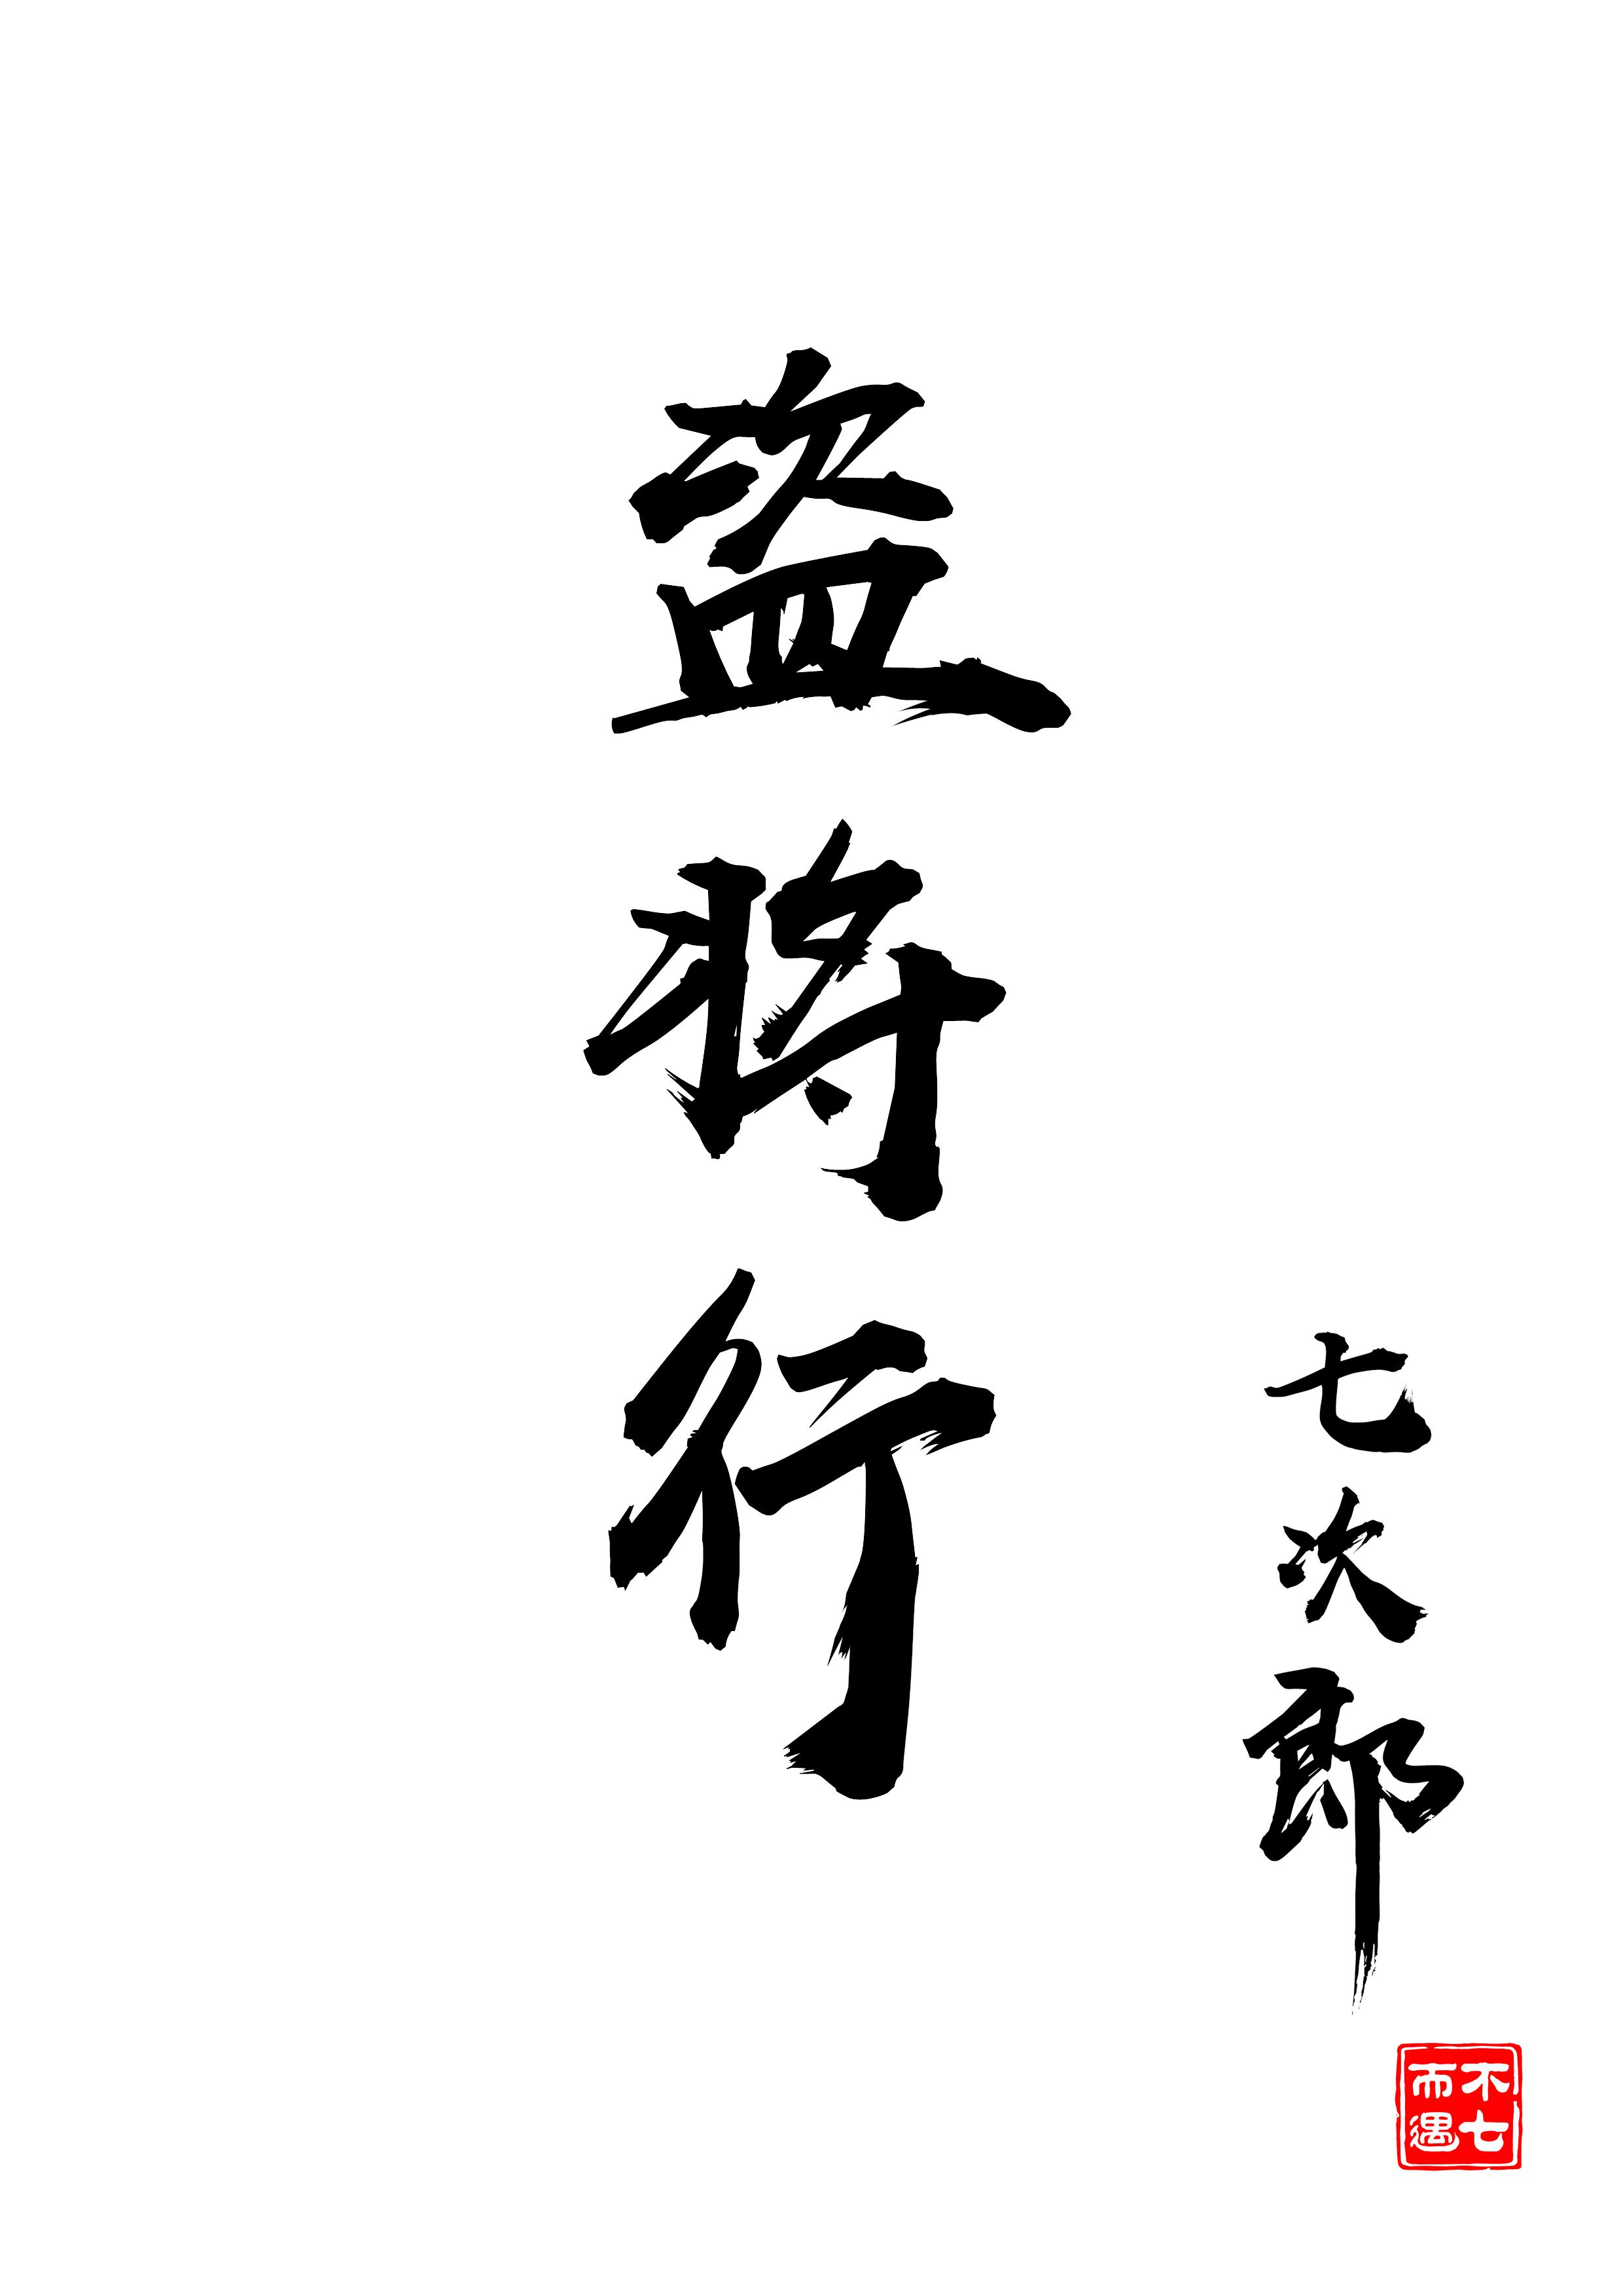 盗将行
七次郎
不七